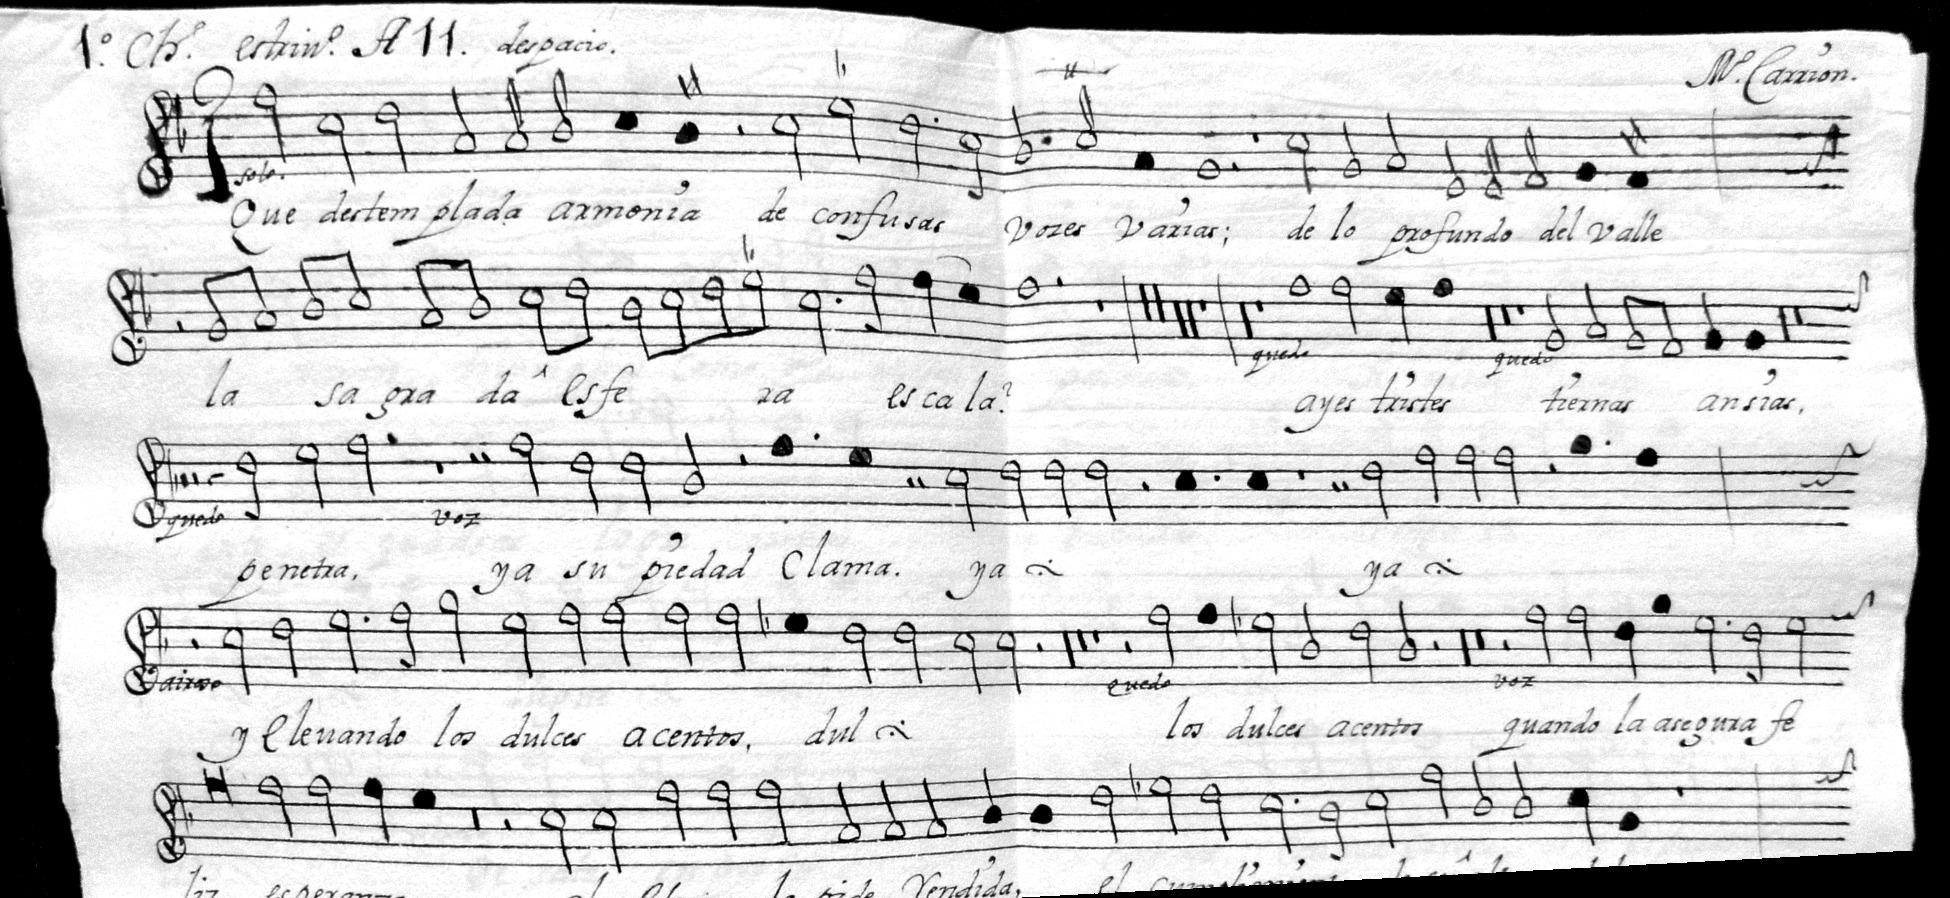 1.º Ch.º estriv.º A 11. despacio.
M.º Carrion.
solo.
Que destemplada armonia de confusas vozes varias; de lo profundo del valle
quedo quedo
la sagrada esfera escala? ayes tristes tiernas ansias,
quedo voz
penetra, ya su piedad Clama. ya ya
airoso quedo voz
y elevando los dulces acentos, dul los dulces acentos quando la asegura fe
liz esperanza el la pide Rendida, el